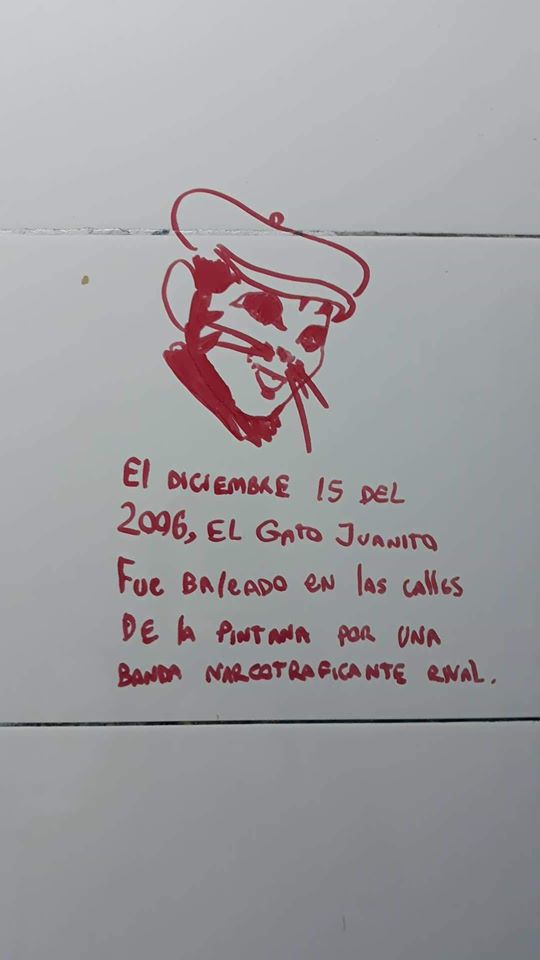 El DICIEMBRE 15 DEL
2006, EL GATO JUANITO
FUE BALEADO EN las calles
DE la PINTANA POR UNA
BANDA NARCOTRAFICANTE RIVAL.